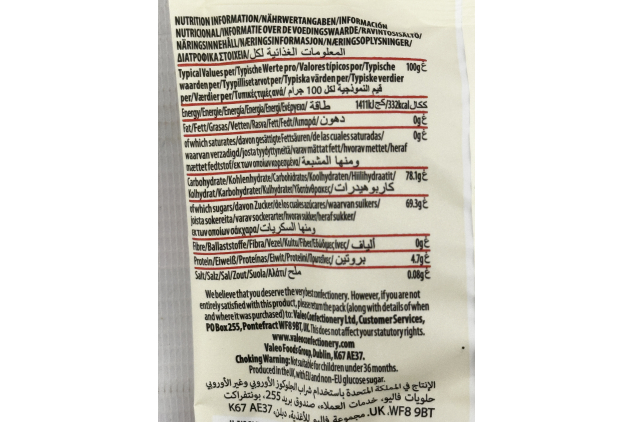 NUTRITION INFORMATION/NÄHRWERTANGABEN/INFORMACIÓN
NUTRICIONAL/INFORMATIE OVER DE VOEDINGSWAARDE/RAVINTOSISÄLTÖ/
NÄRINGSINNEHÅLL/NÆRINGSINFORMASJON/NÆRINGSOPLYSNINGER/
ΔΙΑΤΡΟΦΙΚΑ ΣΤΟΙΧΕΙΑ/المعلومات الغذائية لكل
Typical Values per/Typische Werte pro/Valores típicos por/Typische 100g غ
waarden per/Tyypillisetarvot per/Typiska värden per/Typiske verdier
per/Værdier per/Τυπικές τιμές ανά/ قيم النموذجية لكل 100 جرام
Energy/Energie/Energía/Energia/Energi/Ενέργεια/ طاقة 1411kJ كج/332kcal ككال
Fat/Fett/Grasas/Vetten/Rasva/Fett/Fedt/Λιπαρά/ دهون 0g غ
of which saturates/davon gesättigte Fettsäuren/de las cuales saturadas/ 0g غ
waarvan verzadigd/josta tyydyttyneitä/varav mättat fett/hvorav mettet/heraf
mættede fedtstof/εκ των οποίων κορεσμένα/ ومنها المشبعة
Carbohydrate/Kohlenhydrate/Carbohidratos/Koolhydraten/Hiilihydraatit/ 78.1g غ
Kolhydrat/Karbohydrater/Kulhydrater/Υδατάνθρακες/ كاربوهيدرات
of which sugars/davon Zucker/de los cuales azúcares/waarvan suikers/ 69.3g غ
joista sokereita/varav sockerarter/hvorav sukker/heraf sukker/
εκ των οποίων σάκχαρα/ ومنها السكريات
Fibre/Ballaststoffe/Fibra/Vezel/Kuitu/Fiber/Εδώδιμες ίνες/ ألياف 0g غ
Protein/Eiweiß/Proteínas/Eiwit/Proteiini/Πρωτεΐνες/ بروتين 4.7g غ
Salt/Salz/Sal/Zout/Suola/Αλάτι/ ملح 0.08g غ
We believe that you deserve the very best confectionery. However, if you are not
entirely satisfied with this product, please return the pack (along with details of when
and where it was purchased) to: Valeo Confectionery Ltd, Customer Services,
PO Box 255, Pontefract WF8 9BT, UK. This does not affect your statutory rights.
www.valeoconfectionery.com
Valeo Foods Group, Dublin, K67 AE37.
Choking Warning: Not suitable for children under 36 months.
Produced in the UK, with EU and non-EU glucose sugar.
الإنتاج في المملكة المتحدة باستخدام شراب الجلوكوز الأوروبي وغير الأوروبي
حلويات فاليو، خدمات العملاء، صندوق بريد 255، بونتفراكت
UK .WF8 9BT. مجموعة فاليو للأغذية، دبلن، K67 AE37